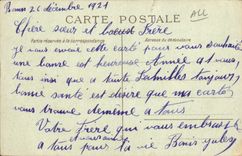 26 décembre 1921
ALL
CARTE POSTALE
Chère sœur et
frère
Partie réservée à la correspondance
Adresse du destinataire
Je vous envoie cette carte pour vous souhaité
une bonne et heureuse Année a
tous que a toute Familles toujours
bonne santé et désire que ma carte
vous trouve de même a tous
Votre Frère qui vous embrasse
a tous pour la vie